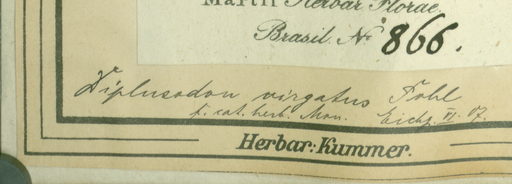 Martii Herbar. Florae
Brasil. No 866.
Diplusodon virgatus Pohl
f. cat. herb. Mon. Eichl. VI. 07.
Herbar: Kummer.